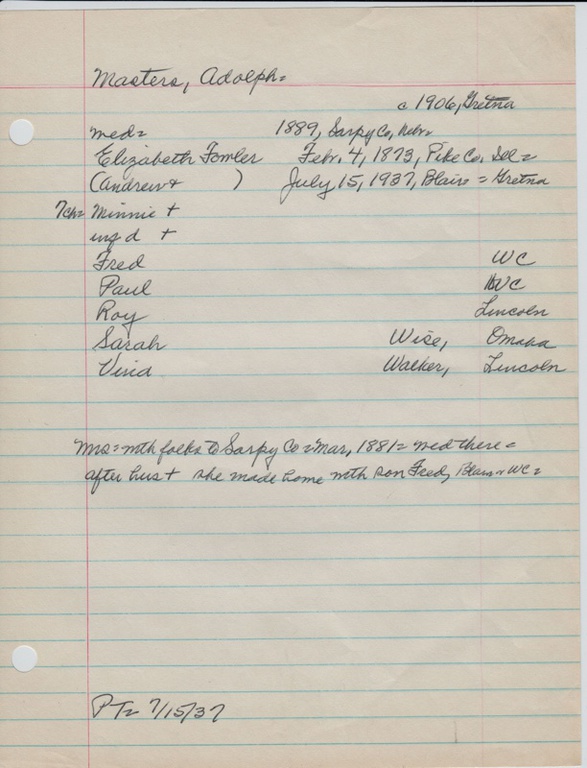 Masters, Adolph=
c 1906, Gretna
med= 1889, Sarpy Co, Nebr=
Elizabeth Fowler Febr. 4, 1873, Pike Co. Ill=
(Andrew + ) July 15, 1937, Blair = Gretna
7ch= Minnie +
inf d +
Fred WC
Paul WC
Roy Lincoln
Sarah Wise, Omaha
Walker, Lincoln
Mrs= with folks to Sarpy Co = Mar, 1881= med there=
after hus + she made home with son Fred, Blair WC=
PT= 7/15/37